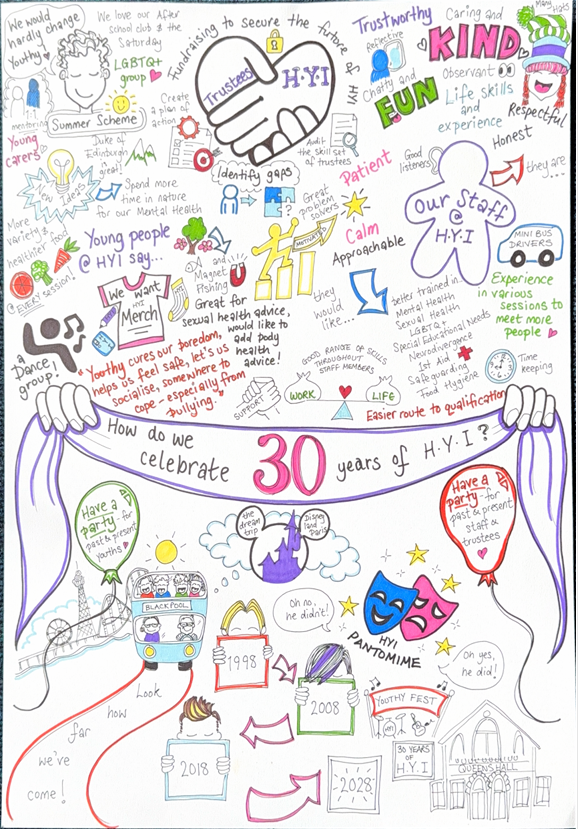 We would
hardly change
Youthy
We love our After
school club & the
Saturday
LGBTQ+
group
mentoring
Summer Scheme
Young
carers
Duke of
Edinburgh
great!
New
Ideas
Spend more
time in nature
for our Mental Health
More
variety &
healthier food
@ EVERY SESSION!
Young people
@ HYI say...
We want
HYI
Merch
a
Dance
group!
Magnet
Fishing
Great for
sexual health advice,
would like to
add body
health
advice!
"Youthy cures our boredom,
helps us feel safe, let's us
socialise, somewhere to
cope - especially from
bullying."
Fundraising to secure the future of HYI
Trustees
H·Y·I
Create
a plan of
action
Audit
the skill set
of trustees
Identify gaps
?
Great
problem
solvers
MOTIVATED
Trustworthy
Reflective
Chatty and
FUN
Caring and
KIND
Observant
Life skills
and
experience
Many
Hats
Respectful
Honest
Patient
Good
listeners
they
are...
Our Staff
@
H·Y·I
Calm
Approachable
MINI BUS
DRIVERS
they
would
like...
better trained in..
Mental Health
Sexual Health
LGBTQ+
Special Educational Needs
Neurodivergence
1st Aid
Safeguarding
Food Hygiene
Experience
in various
sessions to
meet more
people
Time
keeping
GOOD RANGE OF SKILLS
THROUGHOUT
STAFF MEMBERS
SUPPORT
WORK
LIFE
Easier route to qualification
How do we
celebrate 30 years of H·Y·I?
Have a
party - for
past & present
youths
the
dream
trip
Disney
land
Paris
Have a
party - for
past & present
staff &
trustees
BLACKPOOL
Oh no,
he didn't!
HYI
PANTOMIME
Oh yes,
he did!
1998
2008
2018
2028
YOUTHY FEST
30 YEARS
OF
H.Y.I
QUEENS HALL
Look
how
far
we've
come!